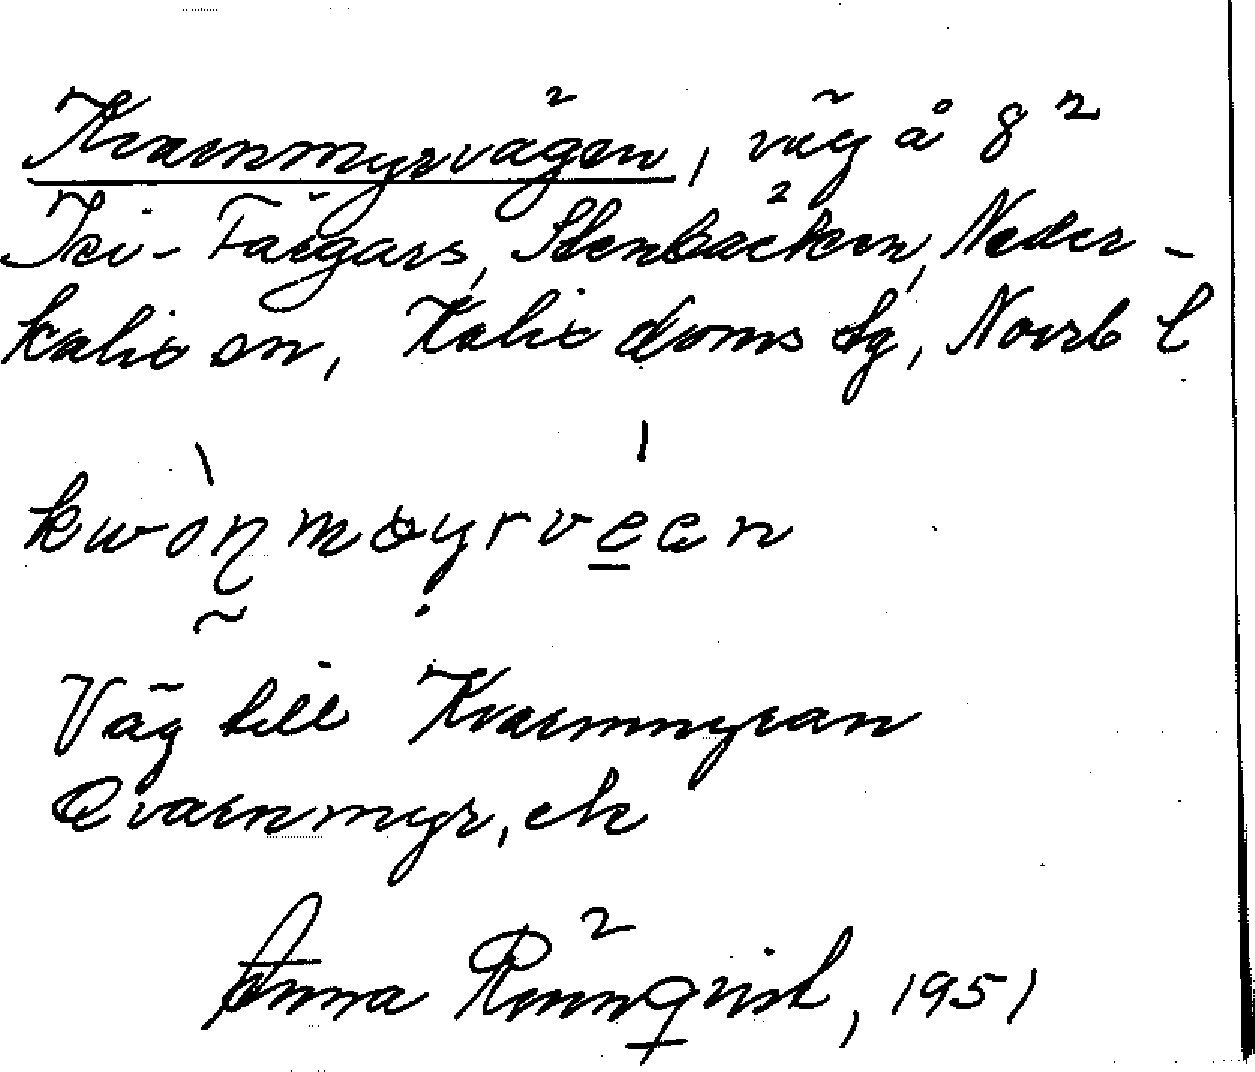 Kvarnmyrvägen, väg å 8²
Tri-Färgars, Stenbäcken, Neder-
kalix sn, Kalix doms dg, Norrb l
Väg till Kvarnmyran
Qvarnmyr, ek
Anna Rönnqvist, 1951